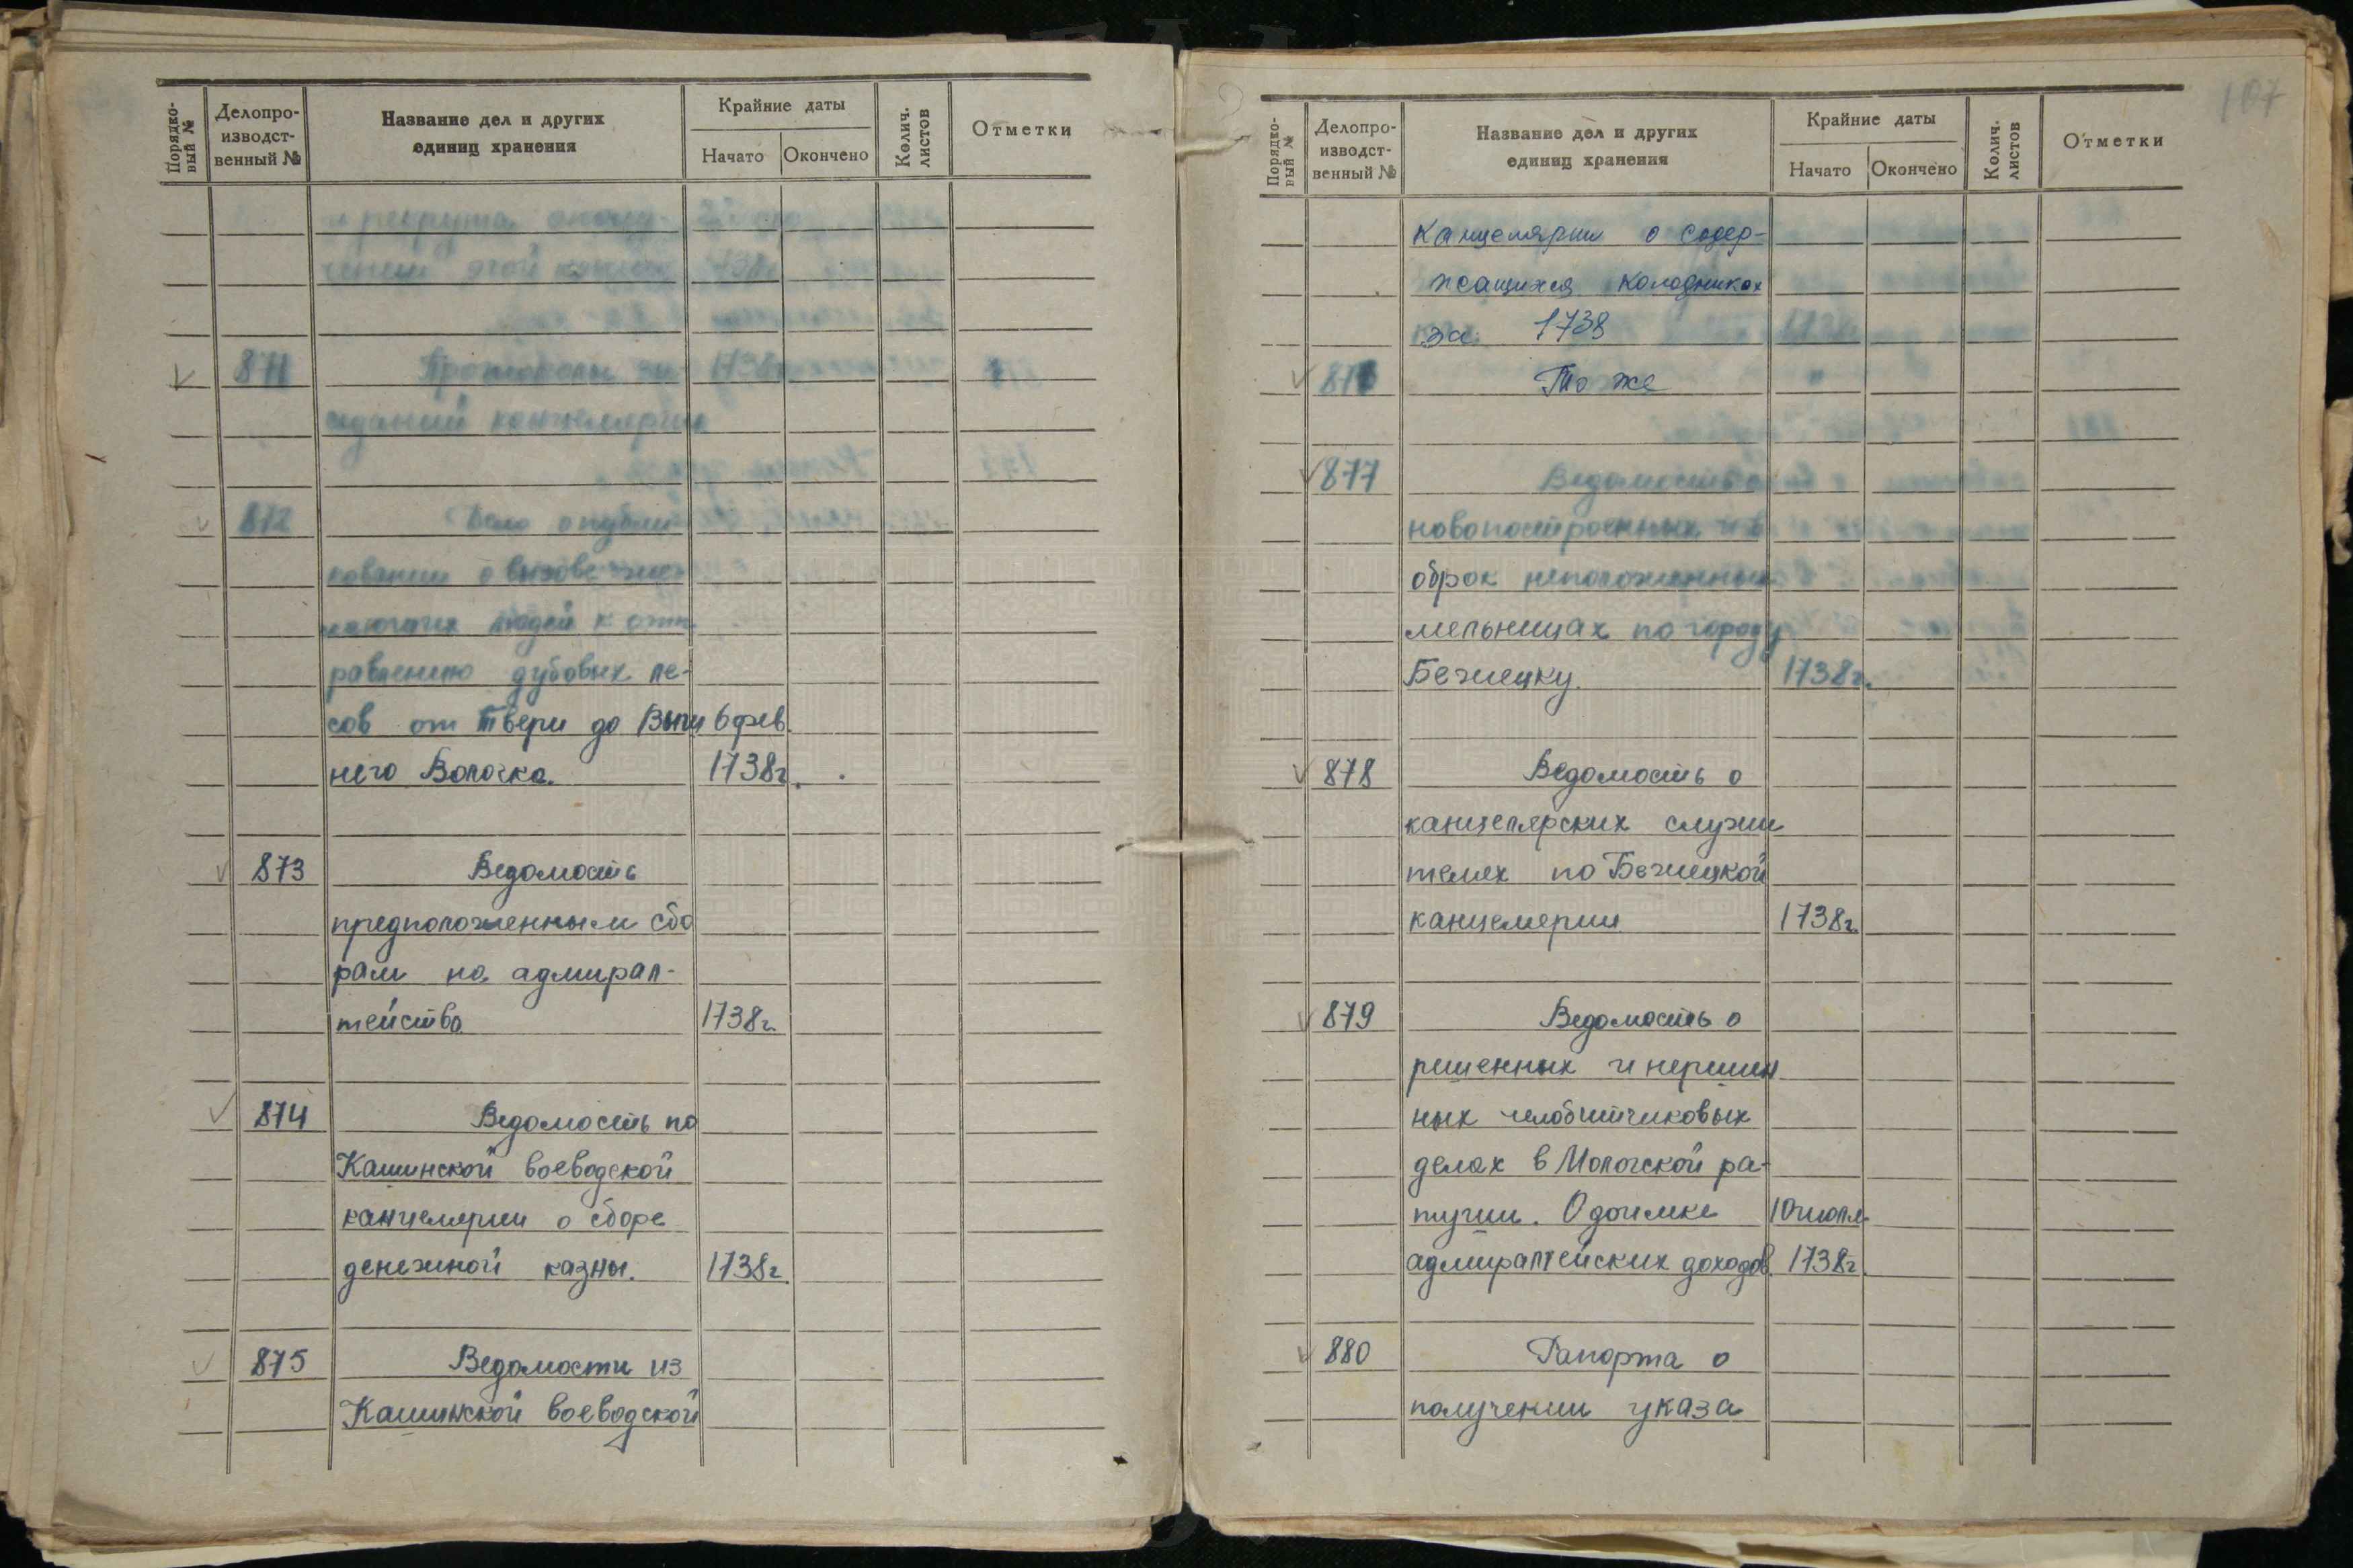 Порядко-
вый №
Делопро-
изводст-
венный №
Название дел и других
единиц хранения
Крайние даты
Начато
Окончено
Колич.
листов
Отметки
и рекрута
этой 1738г
871 Протоколы за- 1738г
седаний канцелярии
872 Дело о публи-
ковании о вызове желающих
людей к отп
равлению дубовых ле-
сов от Твери до Выш 6 фев.
него Волочка. 1738г.
873 Ведомость
предположенным сбо
рам на адмирал-
тейство 1738г.
874 Ведомость по
Кашинской воеводской
канцелярии о сборе
денежной казны. 1738г.
875 Ведомости из
Кашинской воеводской
107
Порядко-
вый №
Делопро-
изводст-
венный №
Название дел и других
единиц хранения
Крайние даты
Начато
Окончено
Колич.
листов
Отметки
Канцелярии о содер-
жащихся колодниках
за 1738
876 То же "
877 Ведомость о
новопостроенных и в
оброк неположенных
мельницах по городу
Бежецку. 1738г.
878 Ведомость о
канцелярских служи
телях по Бежецкой
канцелярии 1738г.
879 Ведомость о
решенных и нерешен
ных челобитчиковых
делах в Мологской ра-
тугии. О доимке 10 июля
адмиралтейских доходов. 1738г.
880 Рапорта о
получении указа